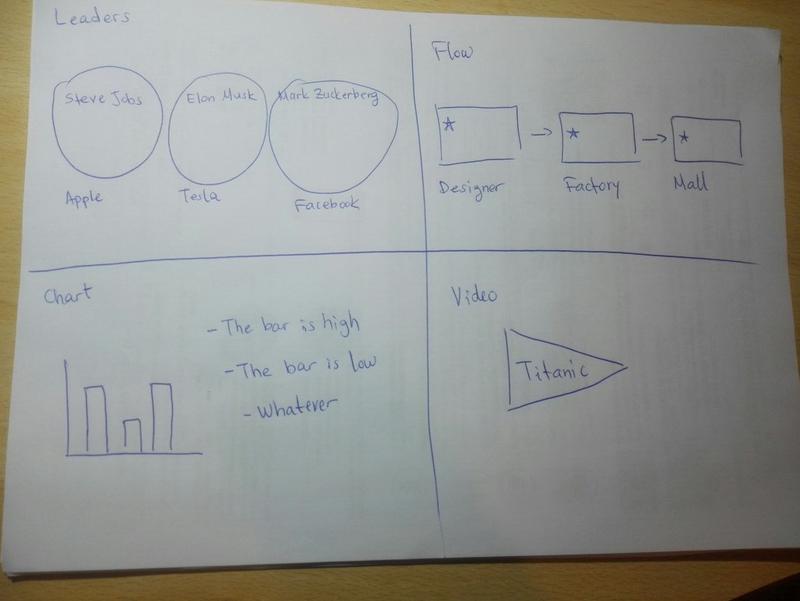 Leaders
Steve Jobs Elon Musk Mark Zuckerberg
Apple Tesla Facebook
Flow
Designer Factory Mall
Chart
- The bar is high
- The bar is low
- Whatever
Video
Titanic